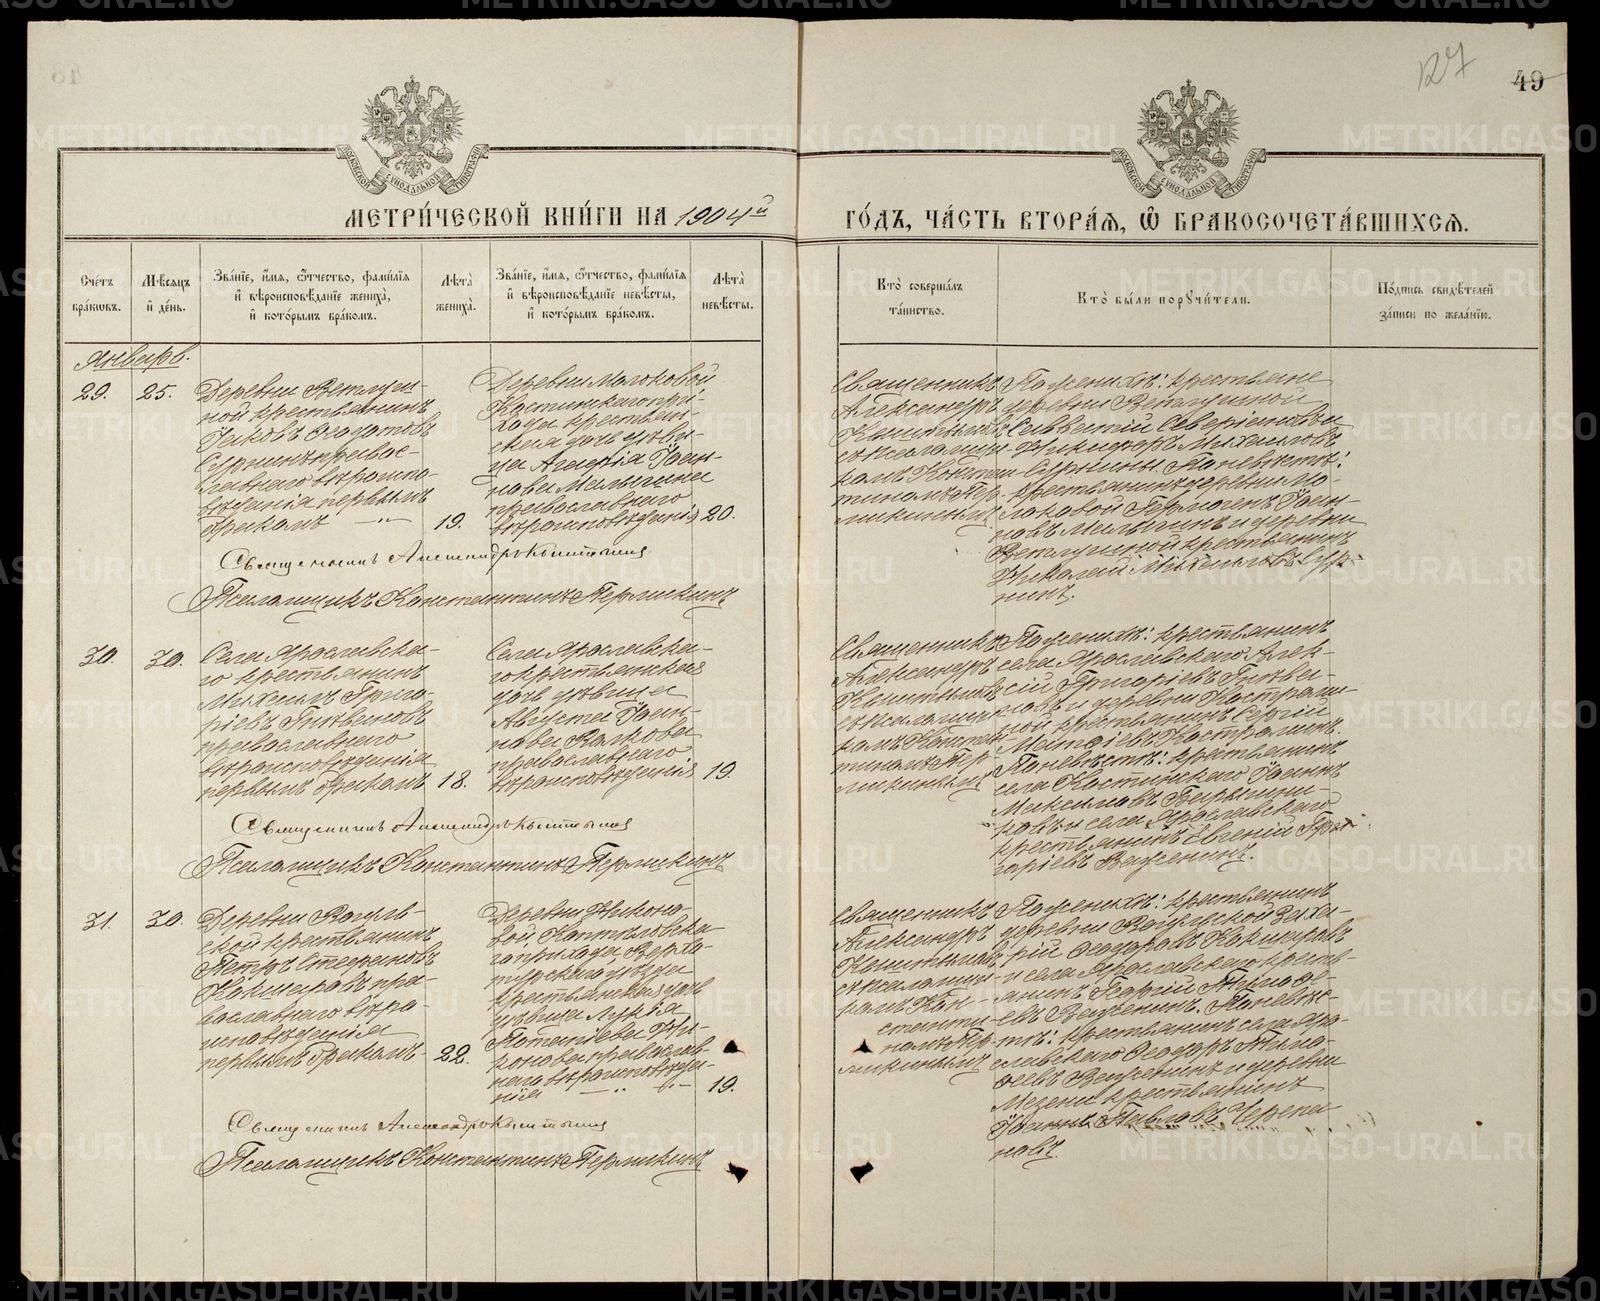 127
49
МЕТРИ́ЧЕСКОЙ КНИ́ГИ НА 1904й
ГО́ДЪ, ЧА́СТЬ ВТОРА́Я, Ѿ БРАКОСОЧЕТА́ВШИХСЯ.
Счетъ браковъ.
Мѣсяцъ и день.
Званіе, имя, отчество, фамилія и вѣроисповѣданіе жениха, и которымъ бракомъ.
Лѣта жениха.
Званіе, имя, отчество, фамилія и вѣроисповѣданіе невѣсты, и которымъ бракомъ.
Лѣта невѣсты.
Кто совершалъ таинство.
Кто были поручители.
Подпись свидѣтелей записи по желанію.
Январь.
29.
25.
Деревни Ветлуш-
ной крестьянинъ
Іаковъ Ѳеодотовъ
Сурнинъ правос-
лавнаго вѣроиспо-
вѣданія первымъ
бракомъ
19.
Деревни Молоковой
Костинскаго при-
хода крестьян-
ская дочь дѣви-
ца Агафія Іоан-
нова Мальгина
православнаго
вѣроисповѣданія
20.
Священникъ
Александръ
съ псаломщи-
комъ Констан-
тиномъ Пер-
ликинымъ
По женихѣ: крестьяне
деревни Ветлушной
Никифоръ Михаиловъ
Сурнины. По невѣстѣ:
крестьянинъ деревни Мо-
локовой Гермогенъ Іоан-
новъ Мальгинъ и деревни
Ветлушной крестьянинъ
Николай Михаиловъ Сур-
нинъ.
Священникъ Александръ
Псаломщикъ Константинъ Перликинъ
30.
30.
Села Ярославска-
го крестьянинъ
Михаилъ Григо-
ріевъ Гневановъ
православнаго
вѣроисповѣданія
первымъ бракомъ
18.
Села Ярославска-
го крестьянская
дочь дѣвица
Августа Іоан-
нова Волкова
православнаго
вѣроисповѣданія
19.
Священникъ
Александръ
съ псаломщи-
комъ Констан-
тиномъ Пер-
ликинымъ
По женихѣ: крестьянинъ
села Ярославскаго Алек-
сій Григоріевъ Гнева-
новъ и деревни Костроми-
ной крестьянинъ Сергій
Матѳіевъ Костроминъ.
По невѣстѣ: крестьянинъ
села Костинскаго Іоаннъ
Максимовъ
и села Ярославскаго
крестьянинъ Евгеній Гри-
горіевъ Важенинъ.
Священникъ Александръ
Псаломщикъ Константинъ Перликинъ
31.
30.
Деревни Вогуль-
ской крестьянинъ
Петръ Стефановъ
Кокшаровъ пра-
вославнаго вѣро-
исповѣданія
первымъ бракомъ
22.
Деревни Никоно-
вой, Коптѣловска-
го прихода Верхо-
турскаго уѣзда
крестьянская дочь
дѣвица Лукія
Потапіева Ни-
конова православ-
наго вѣроисповѣда-
нія
19.
Священникъ
Александръ
съ псаломщи-
комъ Кон-
станти-
номъ Пер-
ликинымъ
По женихѣ: крестьянинъ
деревни Вогульской Заха-
рій Ѳеодоровъ Кокшаровъ
и села Ярославскаго кресть-
янинъ Георгій Тимоѳе-
евъ Важенинъ. По невѣс-
тѣ: крестьянинъ села Яро-
славскаго Ѳеодоръ Тимо-
ѳеевъ Важенинъ и деревни
Мезени крестьянинъ
Іоаннъ Павловъ Черепа-
новъ.
Священникъ Александръ
Псаломщикъ Константинъ Перликинъ
METRIKI.GASO-URAL.RU